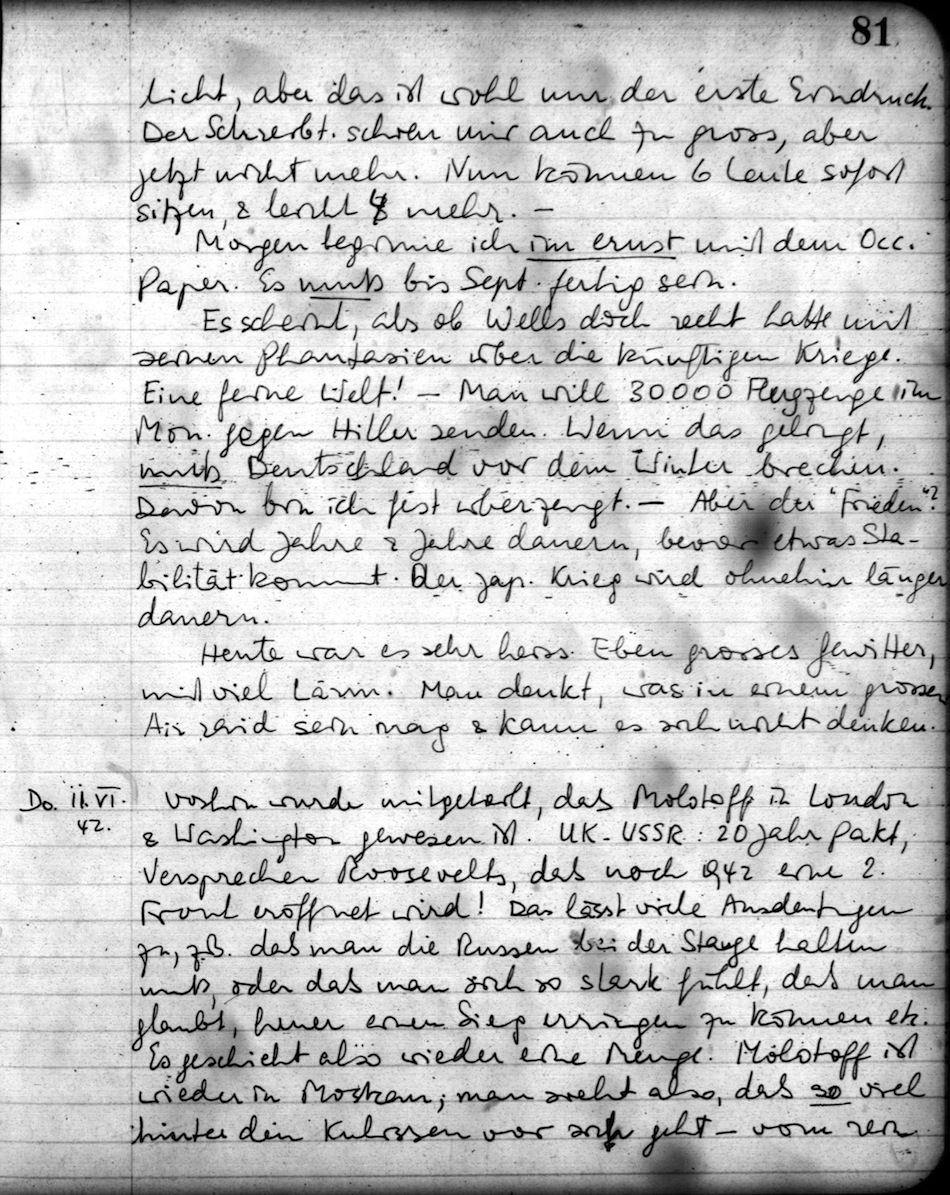 81
licht, aber das ist wohl nur der erste Eindruck.
Der Schreibt. schien mir auch zu gross, aber
jetzt nicht mehr. Nun können 6 Leute sofort
sitzen, & leicht 8 mehr. —
Morgen beginne ich im ernst mit dem Occ.
Paper. Es muß bis Sept. fertig sein.
Es scheint, als ob Wells doch recht hatte mit
seinen Phantasien über die künftigen Kriege.
Eine ferne Welt! — Man will 30000 Flugzeuge im
Mon. gegen Hitler senden. Wenn das gelingt,
muß Deutschland vor dem Winter brechen.
Davon bin ich fest überzeugt. — Aber der "Frieden"?
Es wird Jahre & Jahre dauern, bevor etwas Sta-
bilität kommt. Der jap. Krieg wird ohnehin länger
dauern.
Heute war es sehr heiss. Eben grosses Gewitter,
mit viel Lärm. Man denkt, was in einem grossen
Air raid sein mag & kann es sich nicht denken.
Do. 11. VI. vorhin wurde mitgeteilt, daß Molotoff in London
42. & Washington gewesen ist. UK - USSR : 20 Jahr Pakt,
Versprechen Roosevelts, daß noch 1942 eine 2.
Front eröffnet wird! Das lässt viele Ausdeutungen
zu, zB. daß man die Russen bei der Stange halten
muß, oder daß man sich so stark fühlt, daß man
glaubt, heuer einen Sieg erringen zu können etc.
Es geschieht also wieder eine Menge. Molotoff ist
wieder in Moskau; man sieht also, daß so viel
hinter den Kulissen vor sich geht — vom rein